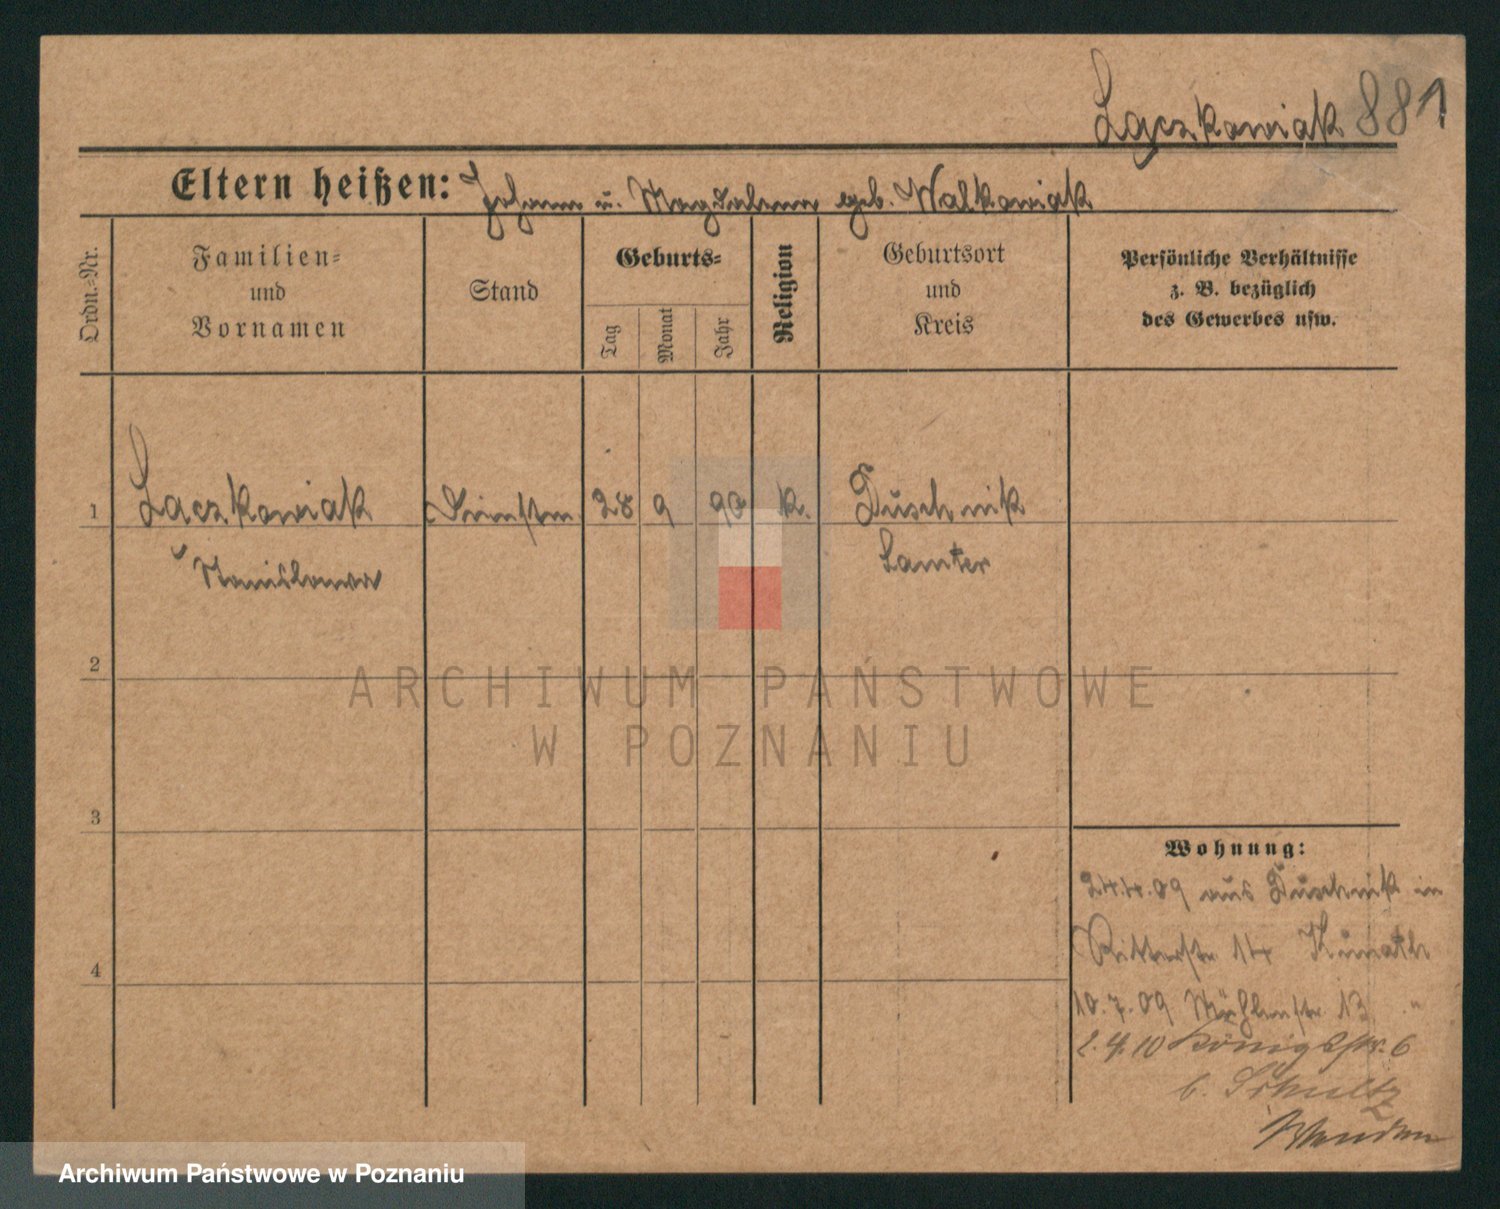 Laczkowiak 881
Eltern heißen: Johann u. Magdalena geb. Walkowiak
Ordn.-Nr.
Familien-
und
Vornamen
Stand
Geburts-
Tag
Monat
Jahr
Religion
Geburtsort
und
Kreis
Persönliche Verhältnisse
z. B. bezüglich
des Gewerbes usw.
1 Laczkowiak 28 9 90 k. Duschnik
Stanislawa Samter
2
ARCHIWUM PAŃSTWOWE
W POZNANIU
3
Wohnung:
24.4.09 aus Duschnik in
4 Ritterstr 14 Kunath
10.7.09 Mühlenstr. 13 "
2.4.10 Königstr. 6
b. Schultz
Archiwum Państwowe w Poznaniu